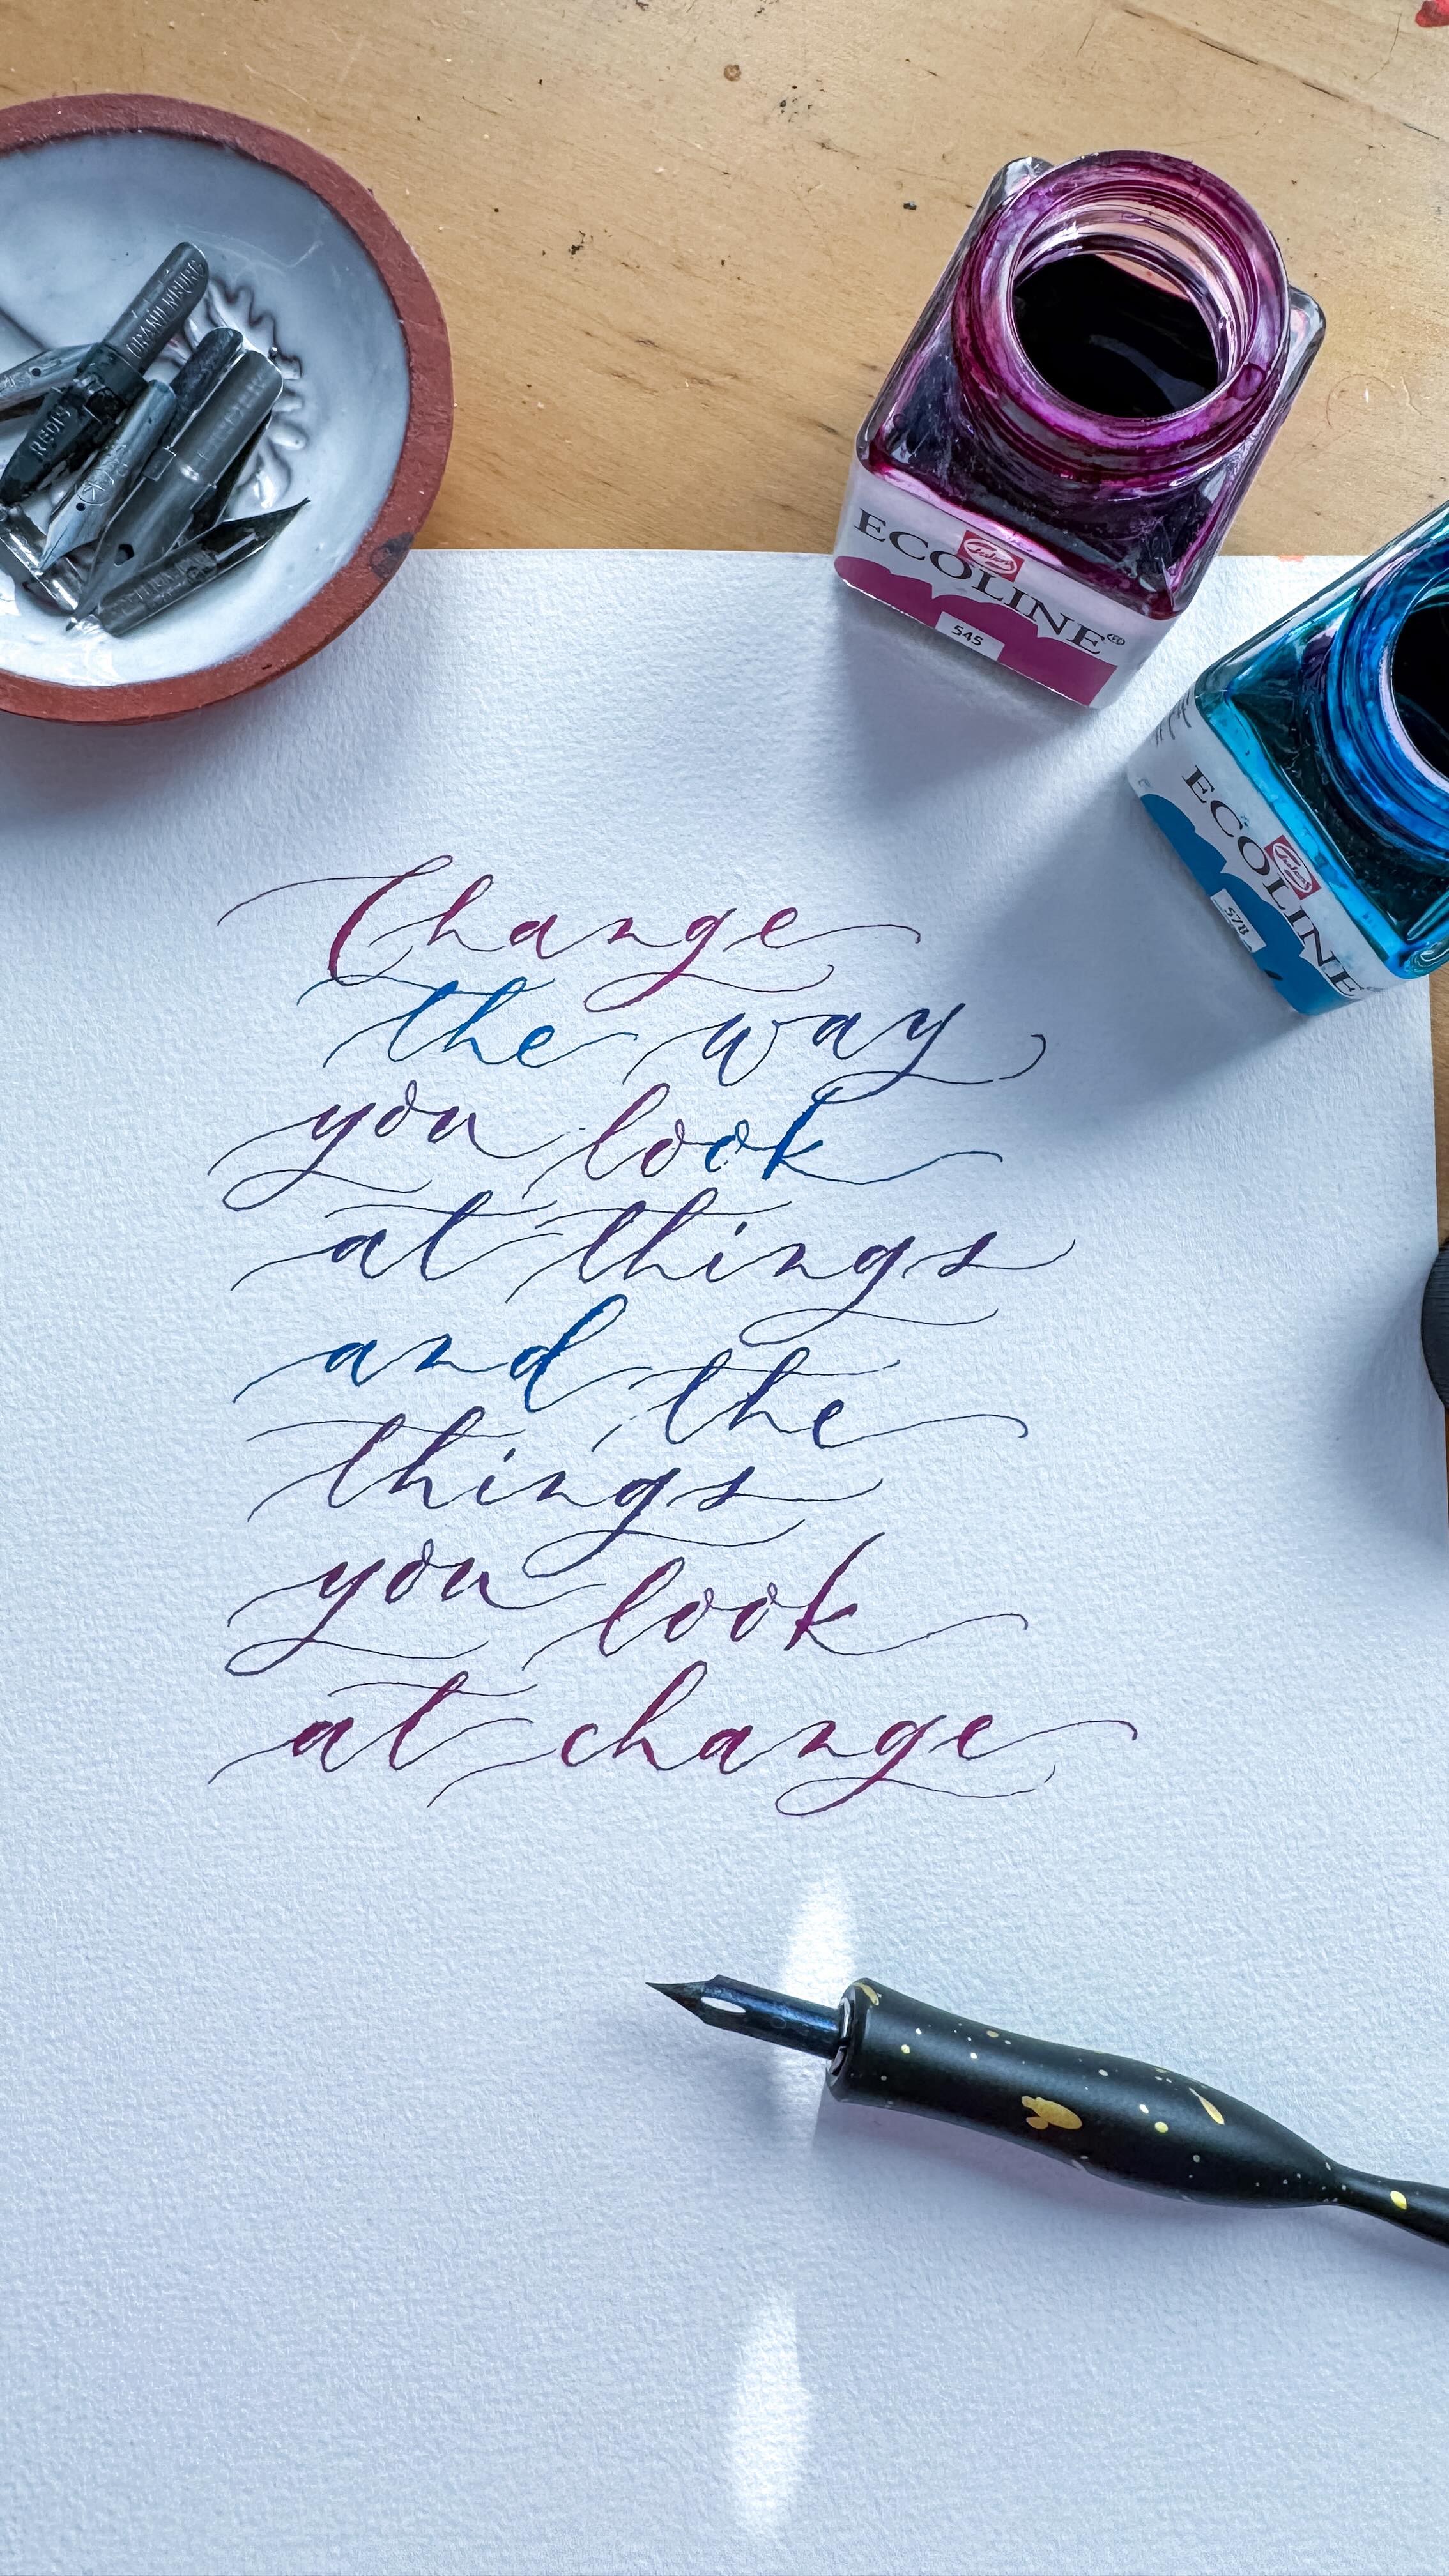 ORANIENBURG
REDIS
ECOLINE®
Talens
545
ECOLINE
Talens
578
Change
the way
you look
at things
and the
things
you look
at change